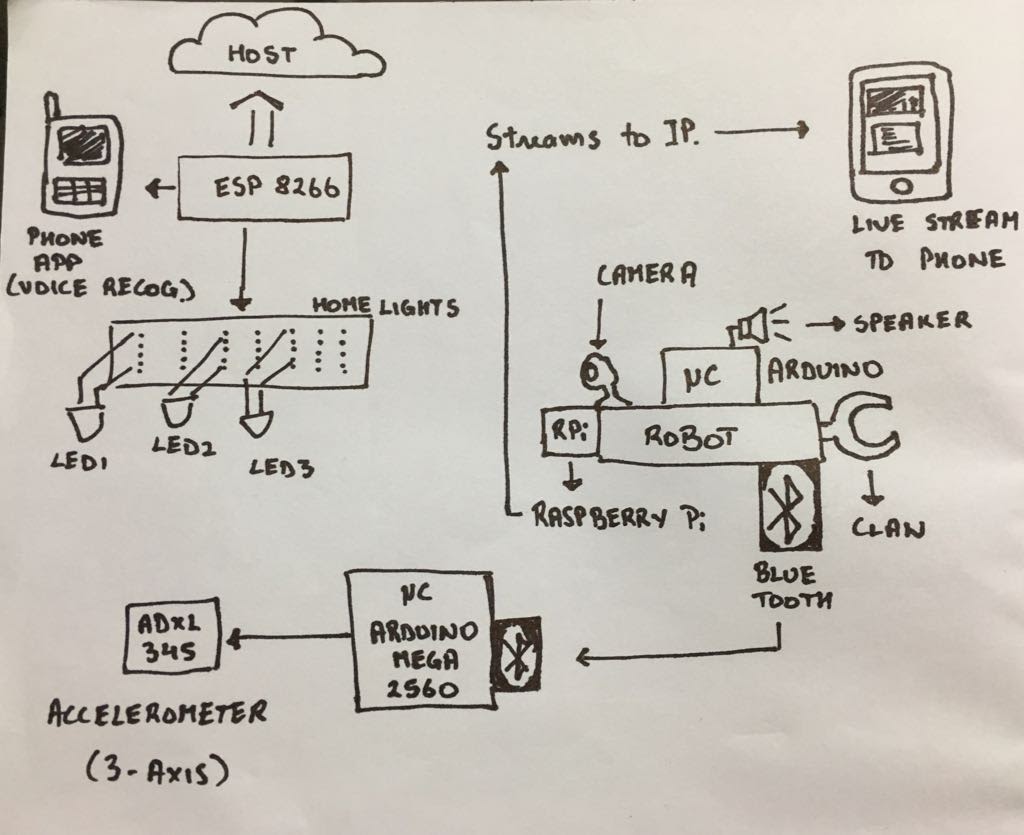 HOST
ESP 8266
PHONE
APP
(VOICE RECOG.)
HOME LIGHTS
LED1
LED2
LED3
Streams to IP.
LIVE STREAM
TO PHONE
CAMERA
SPEAKER
μC
ARDUINO
RPi
ROBOT
RASPBERRY Pi
CLAN
BLUE
TOOTH
ADXL
345
μC
ARDUINO
MEGA
2560
ACCELEROMETER
(3-AXIS)